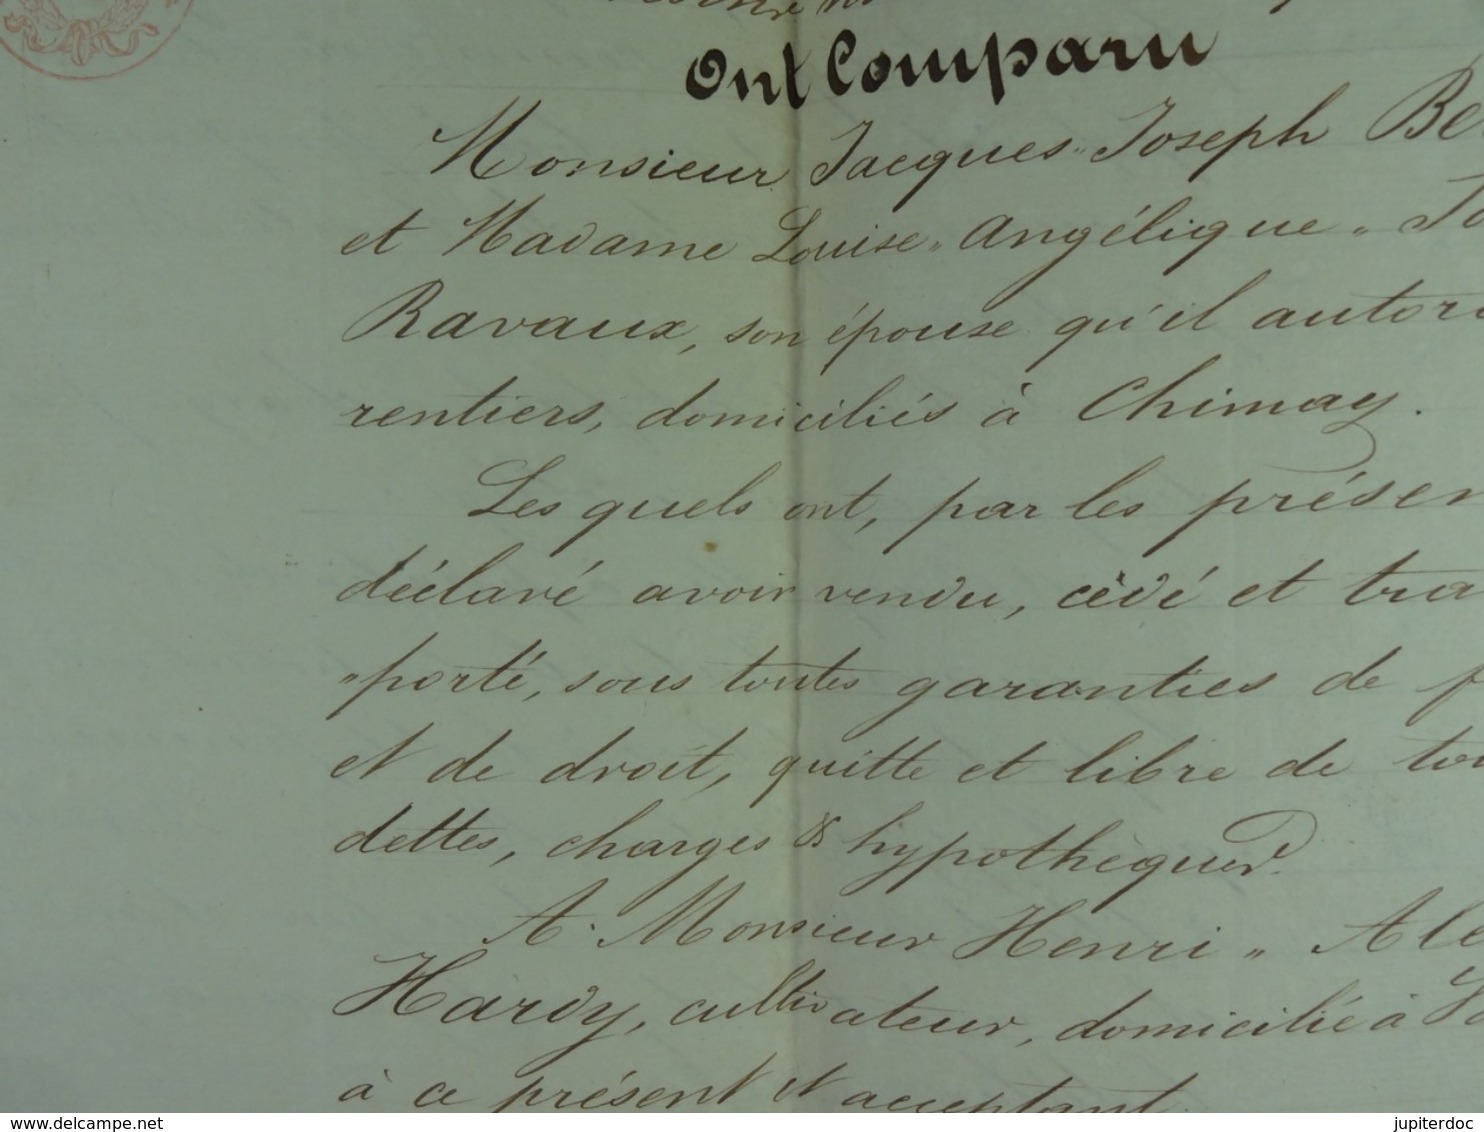 Ont Comparu
Monsieur Jacques-Joseph Be
et Madame Louise-Angélique-
Ravaux, son épouse qu'il autori
rentiers, domiciliés à Chimay.
Les quels ont, par les présen
déclaré avoir vendu, cédé et tra
"porté, sous toutes garanties de f
et de droit, quitte et libre de tou
dettes, charges & hypothèques.
A Monsieur Henri-Ale
Hardy, cultivateur, domicilié à
à ce présent et acceptant.
jupiterdoc